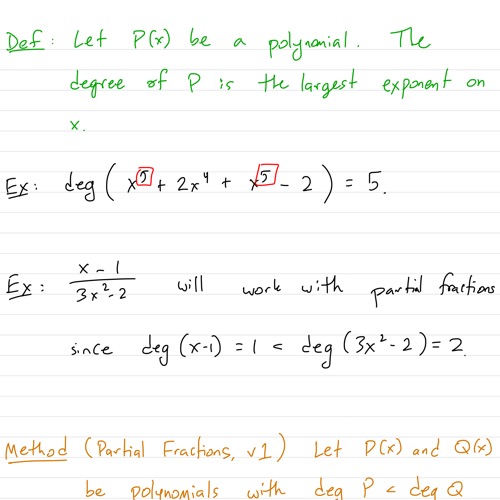 Def: Let P(x) be a polynomial. The
degree of P is the largest exponent on
x.
Ex: deg(x⁵ + 2x⁴ + x⁵ - 2) = 5.
Ex: (x - 1)/(3x² - 2) will work with partial fractions
since deg(x-1) = 1 < deg(3x² - 2) = 2.
Method (Partial Fractions, v1) Let P(x) and Q(x)
be polynomials with deg P < deg Q